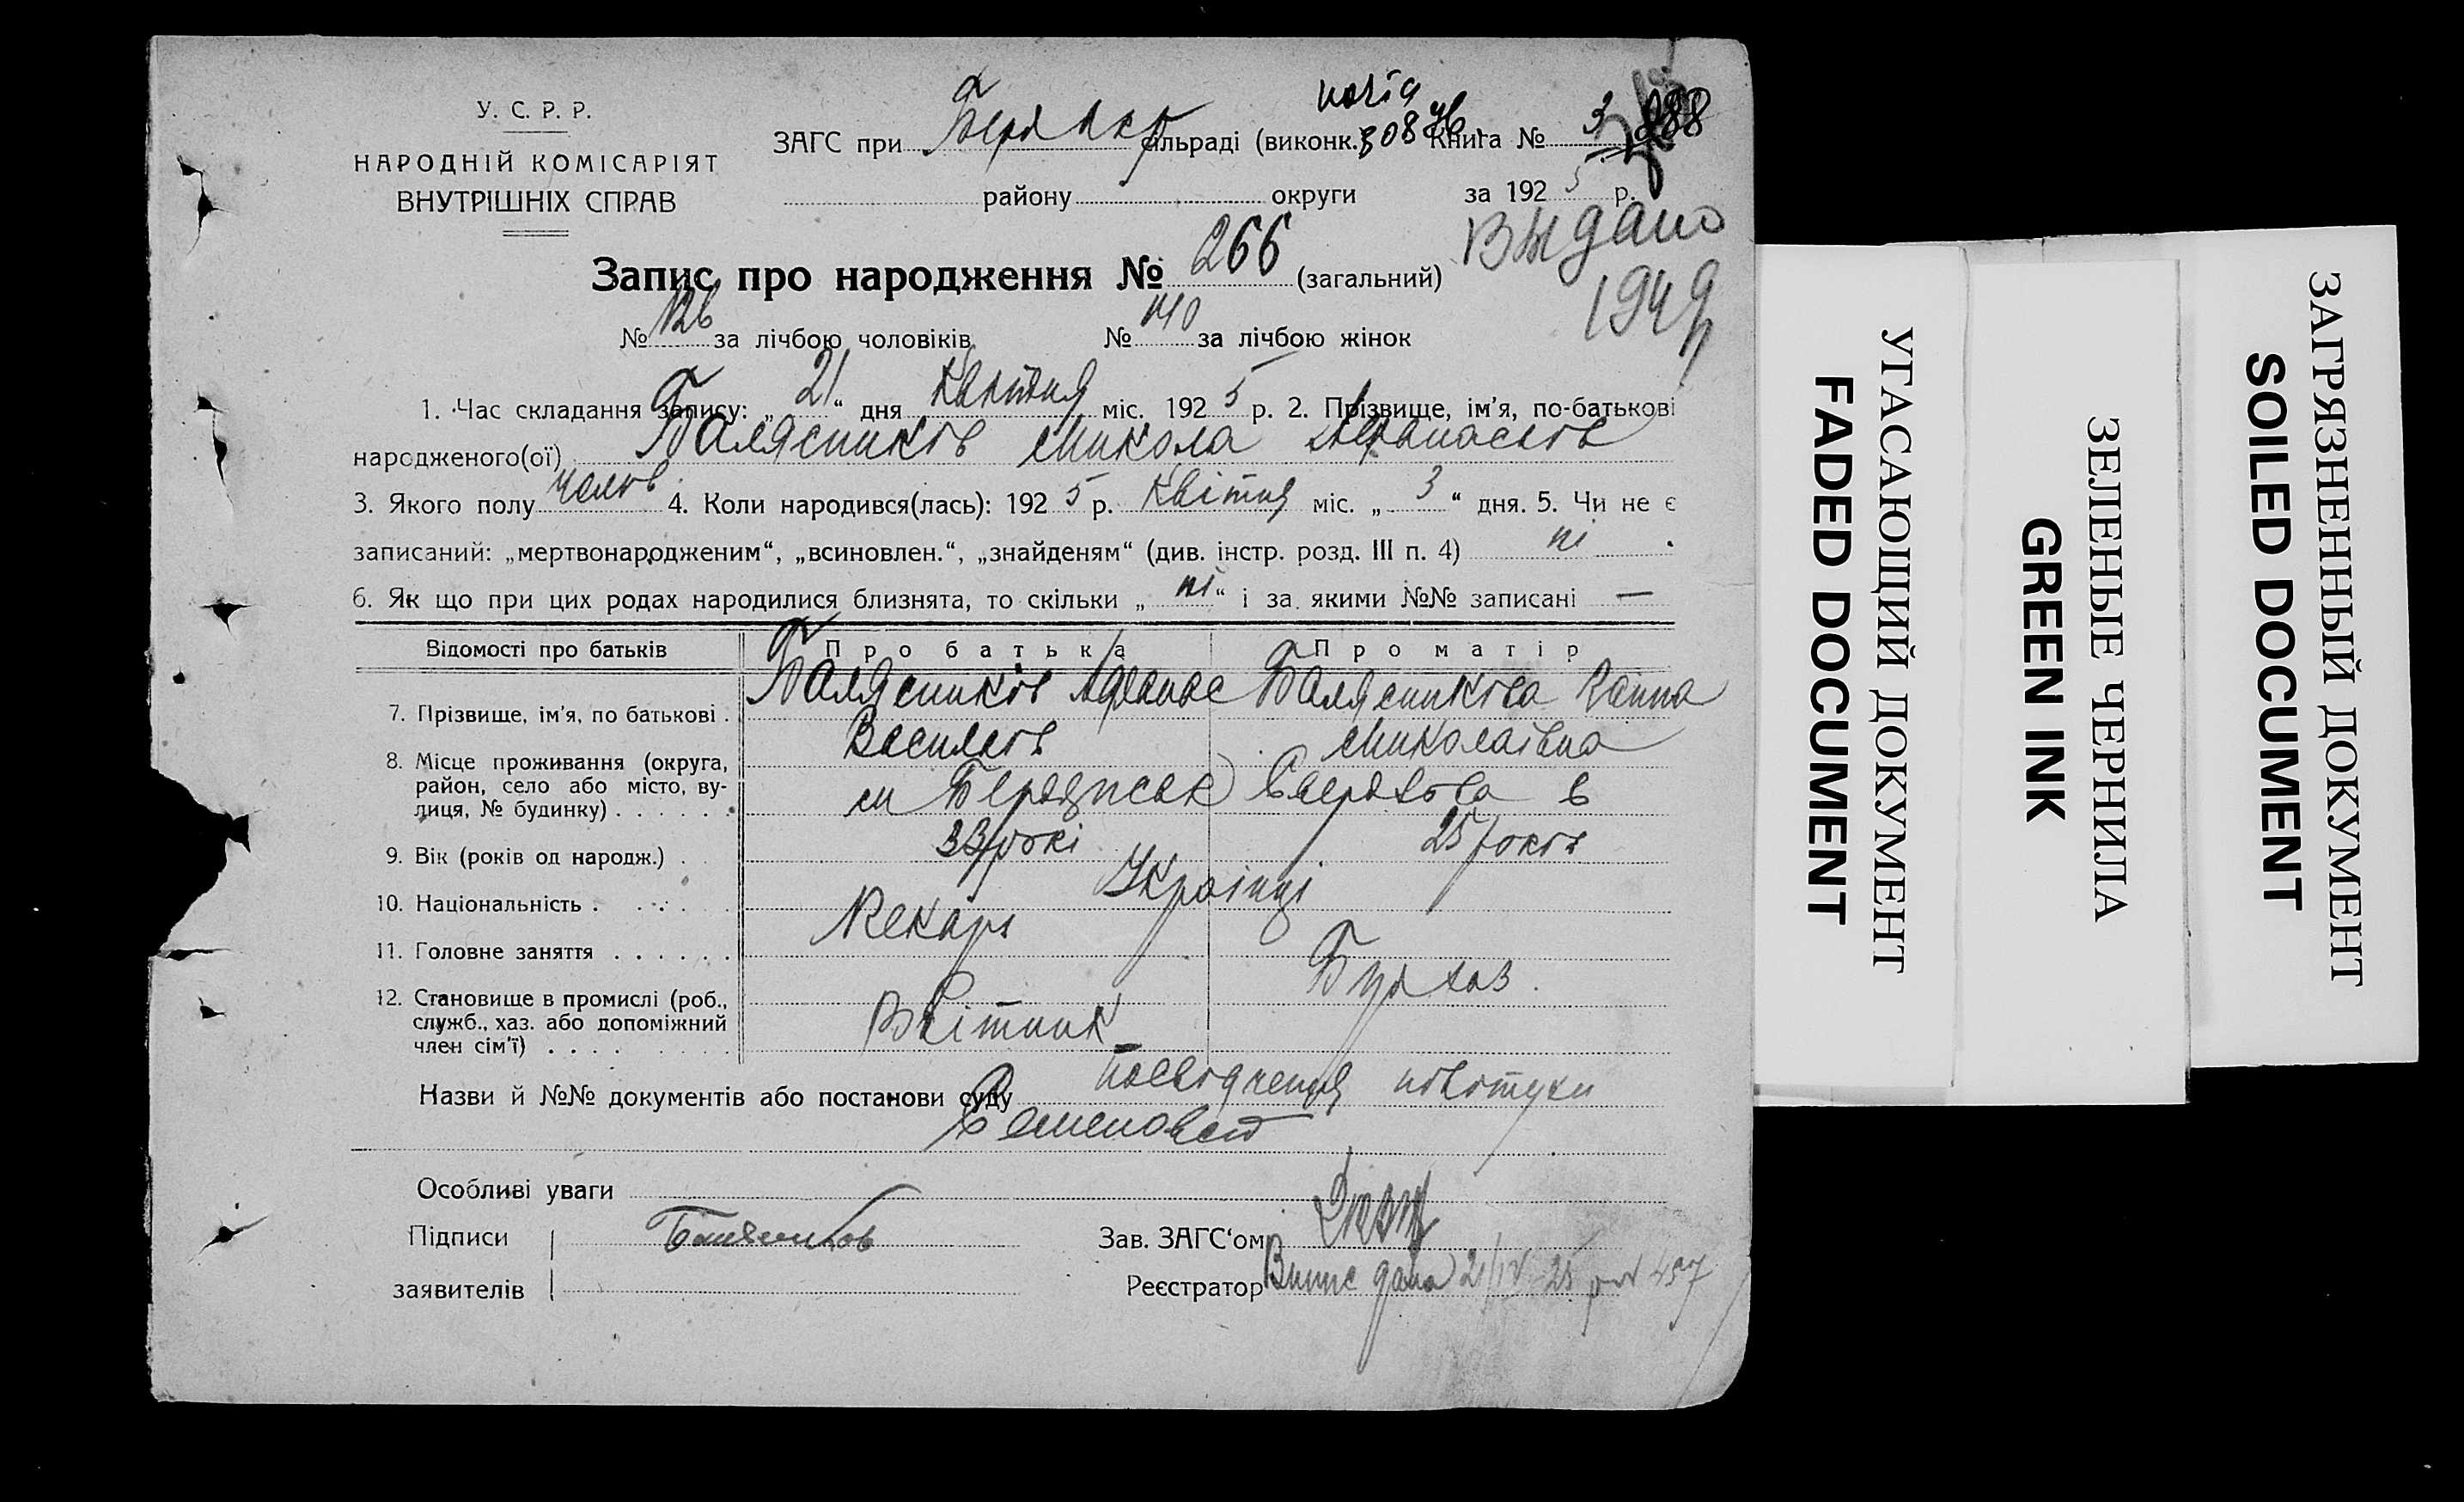 У. С. Р. Р.
НАРОДНІЙ КОМІСАРІЯТ
ВНУТРІШНІХ СПРАВ
копія
ЗАГС при Бердлкр сільраді (виконк.) Книга № 3 288
району округи за 1925 р.
Видано
1949 р
Запис про народження № 266 (загальний)
№ 126 за лічбою чоловіків № 140 за лічбою жінок
1. Час складання запису: „21“ дня Квітня міс. 1925 р. 2. Прізвище, ім'я, по-батькові
народженого(ої) Балясников Микола Афанасьов
3. Якого полу чолов 4. Коли народився(лась): 1925 р. Квітня міс. „3“ дня. 5. Чи не є
записаний: „мертвонародженим“, „всиновлен.“, „знайденям“ (див. інстр. розд. III п. 4) ні
6. Як що при цих родах народилися близнята, то скільки „ні“ і за якими №№ записані —
Відомості про батьків Про батька Про матір
7. Прізвище, ім'я, по батькові . Балясников Афанас Васильов Балясникова Ганна Миколаівна
8. Місце проживання (округа,
район, село або місто, ву-
лиця, № будинку) . . . . . . м Бердянськ Свердлова 6
9. Вік (років од народж.) . 33 рокі 25 років
10. Національність . Украінці
11. Головне заняття . . . . . . Пекарь
12. Становище в промислі (роб.,
служб., хаз. або допоміжний
член сім'ї) . . . . Робітник
Назви й №№ документів або постанови суду посвідчення повітухи
Семеновой
Особливі уваги
Підписи Балясников Зав. ЗАГС‘ом
заявителів Реєстратор
Випис дана 21/IV 25 р № 457
ЗАГРЯЗНЕННЫЙ ДОКУМЕНТ
SOILED DOCUMENT
ЗЕЛЕНЫЕ ЧЕРНИЛА
GREEN INK
УГАСАЮЩИЙ ДОКУМЕНТ
FADED DOCUMENT